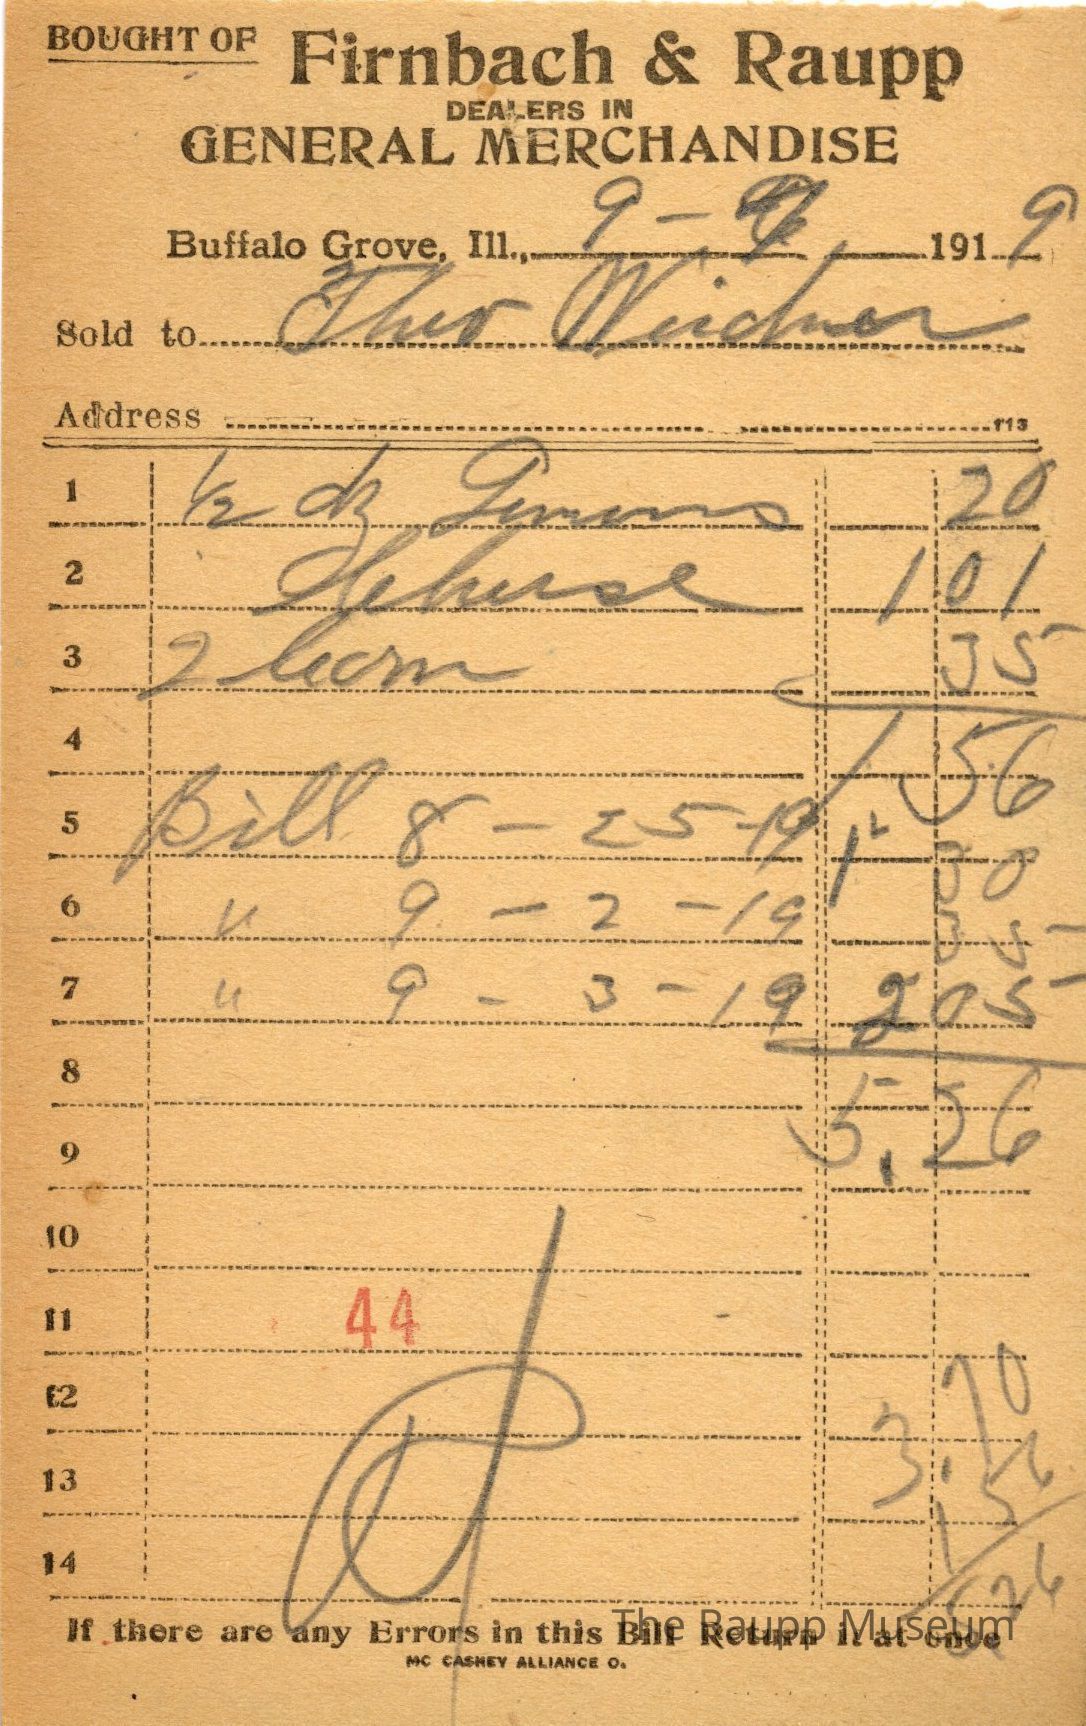 BOUGHT OF Firnbach & Raupp
DEALERS IN
GENERAL MERCHANDISE
Buffalo Grove, Ill., 9 - 191 9
Sold to Theo Weidner
Address 113
1 1/2 dz Lemons 20
2 Cheese 1 01
3 2 Corn 35
4 1 56
5 Bill 8 - 25 - 19 1 30
6 " 9 - 2 - 19 35
7 " 9 - 3 - 19 2 05
8
9 5.26
10
11 44
12 3.70
13 1 56
14 5 26
If there are any Errors in this Bill Return it at once
The Raupp Museum
MC CASKEY ALLIANCE O.